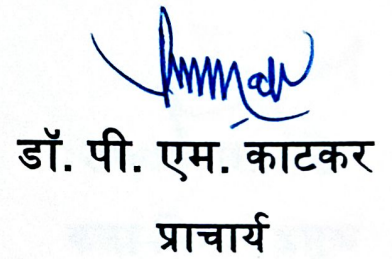 डॉ. पी. एम. काटकर
प्राचार्य